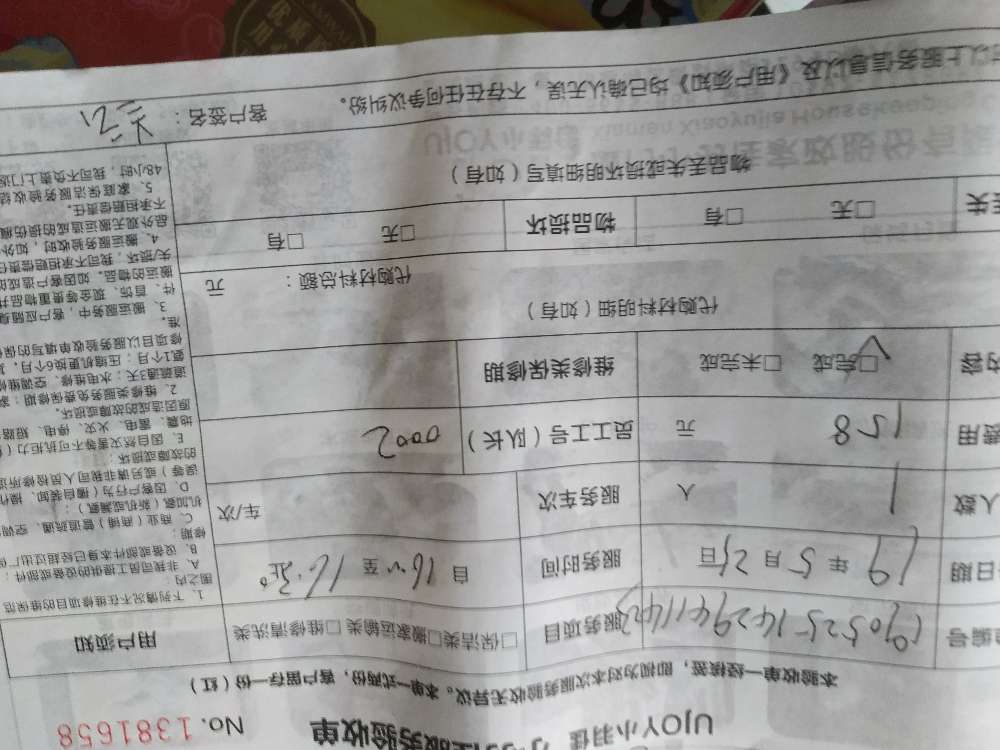 UJOY小羽佳
服务验收单
No. 1381658
本验收单一经接签，即视为对本次服务验收无异议。本单一式两份，客户留存一份（红）
编号
服务项目 □保洁类□搬家运输类 □维修清洗类
用户须知
日期 19 年 5 月 25 日
服务时间 自 至
人数 1 人
服务车次 车/次
费用 158 元
员工工号（队长） 0002
内容 □完成 □未完成
维修类保修期
代购材料明细（如有）
代购材料总额： 元
□无 □有
物品损坏 □无 □有
物品丢失或损坏明细填写（如有）
以上服务信息以及《用户须知》均已确认无误，不存在任何争议纠纷。 客户签名：
1、下列情况不在维修项目的维保范
围之内：
A、非我司员工提供的设备或部件；
B、设备或部件本身已经超过出厂
修期；
C、商业（商铺）管道疏通、空调
机加氨（新机或漏氟）；
D、因客户行为（擅自装卸、操作
误等）或另请非我司人员检修所造
的故障或损坏；
E、因自然灾害等不可抗力（
地震、雷电、火灾、停电、短路
原因造成的故障或损坏。
2、维修类服务免费保修期：家
道疏通3天；水电维修、空调维修
氨1个月；压缩机更换6个月，其
修项目以服务验收单填写的保修
准。
3、搬运服务中，客户应随身
件、首饰、现金等贵重物品并
搬运的物品。如因客户造成的
失/损坏，我司不承担赔偿责任
4、搬运服务验收时，如外
品外观无搬运造成的损伤痕
不承担赔偿责任。
5、家庭保洁服务验收结
48小时，我司不负责上门返